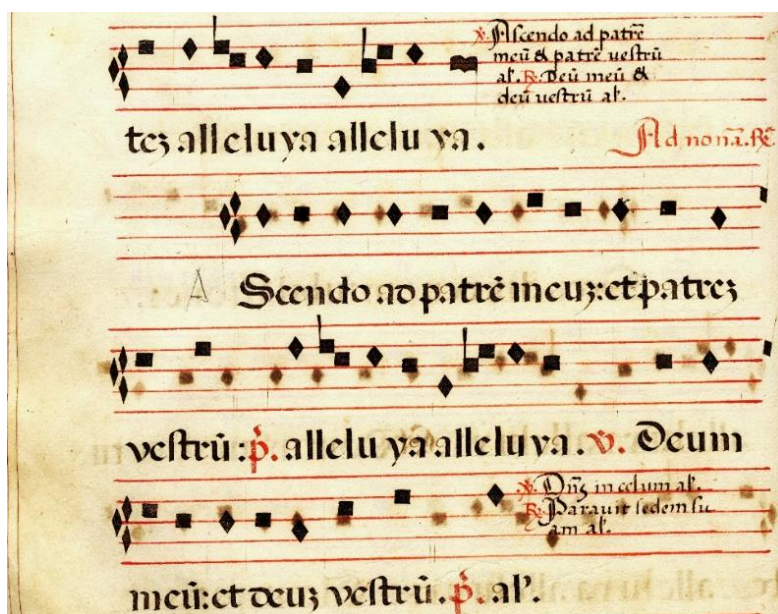 ℣. Ascendo ad patrē
meū & patrē vestrū
al'. ℟. Deū meū &
deū vestrū al'.
teʒ alleluya alleluya.
Ad nonā. ℟.
A Scendo ad patrē meuʒ: et patreʒ
vestrū: p̄. alleluya alleluya. ℣. Deum
℣. Dn̄s in celum al'.
℟. Paravit sedem su
am al'.
meū: et deuʒ vestrū. p̄. al'.